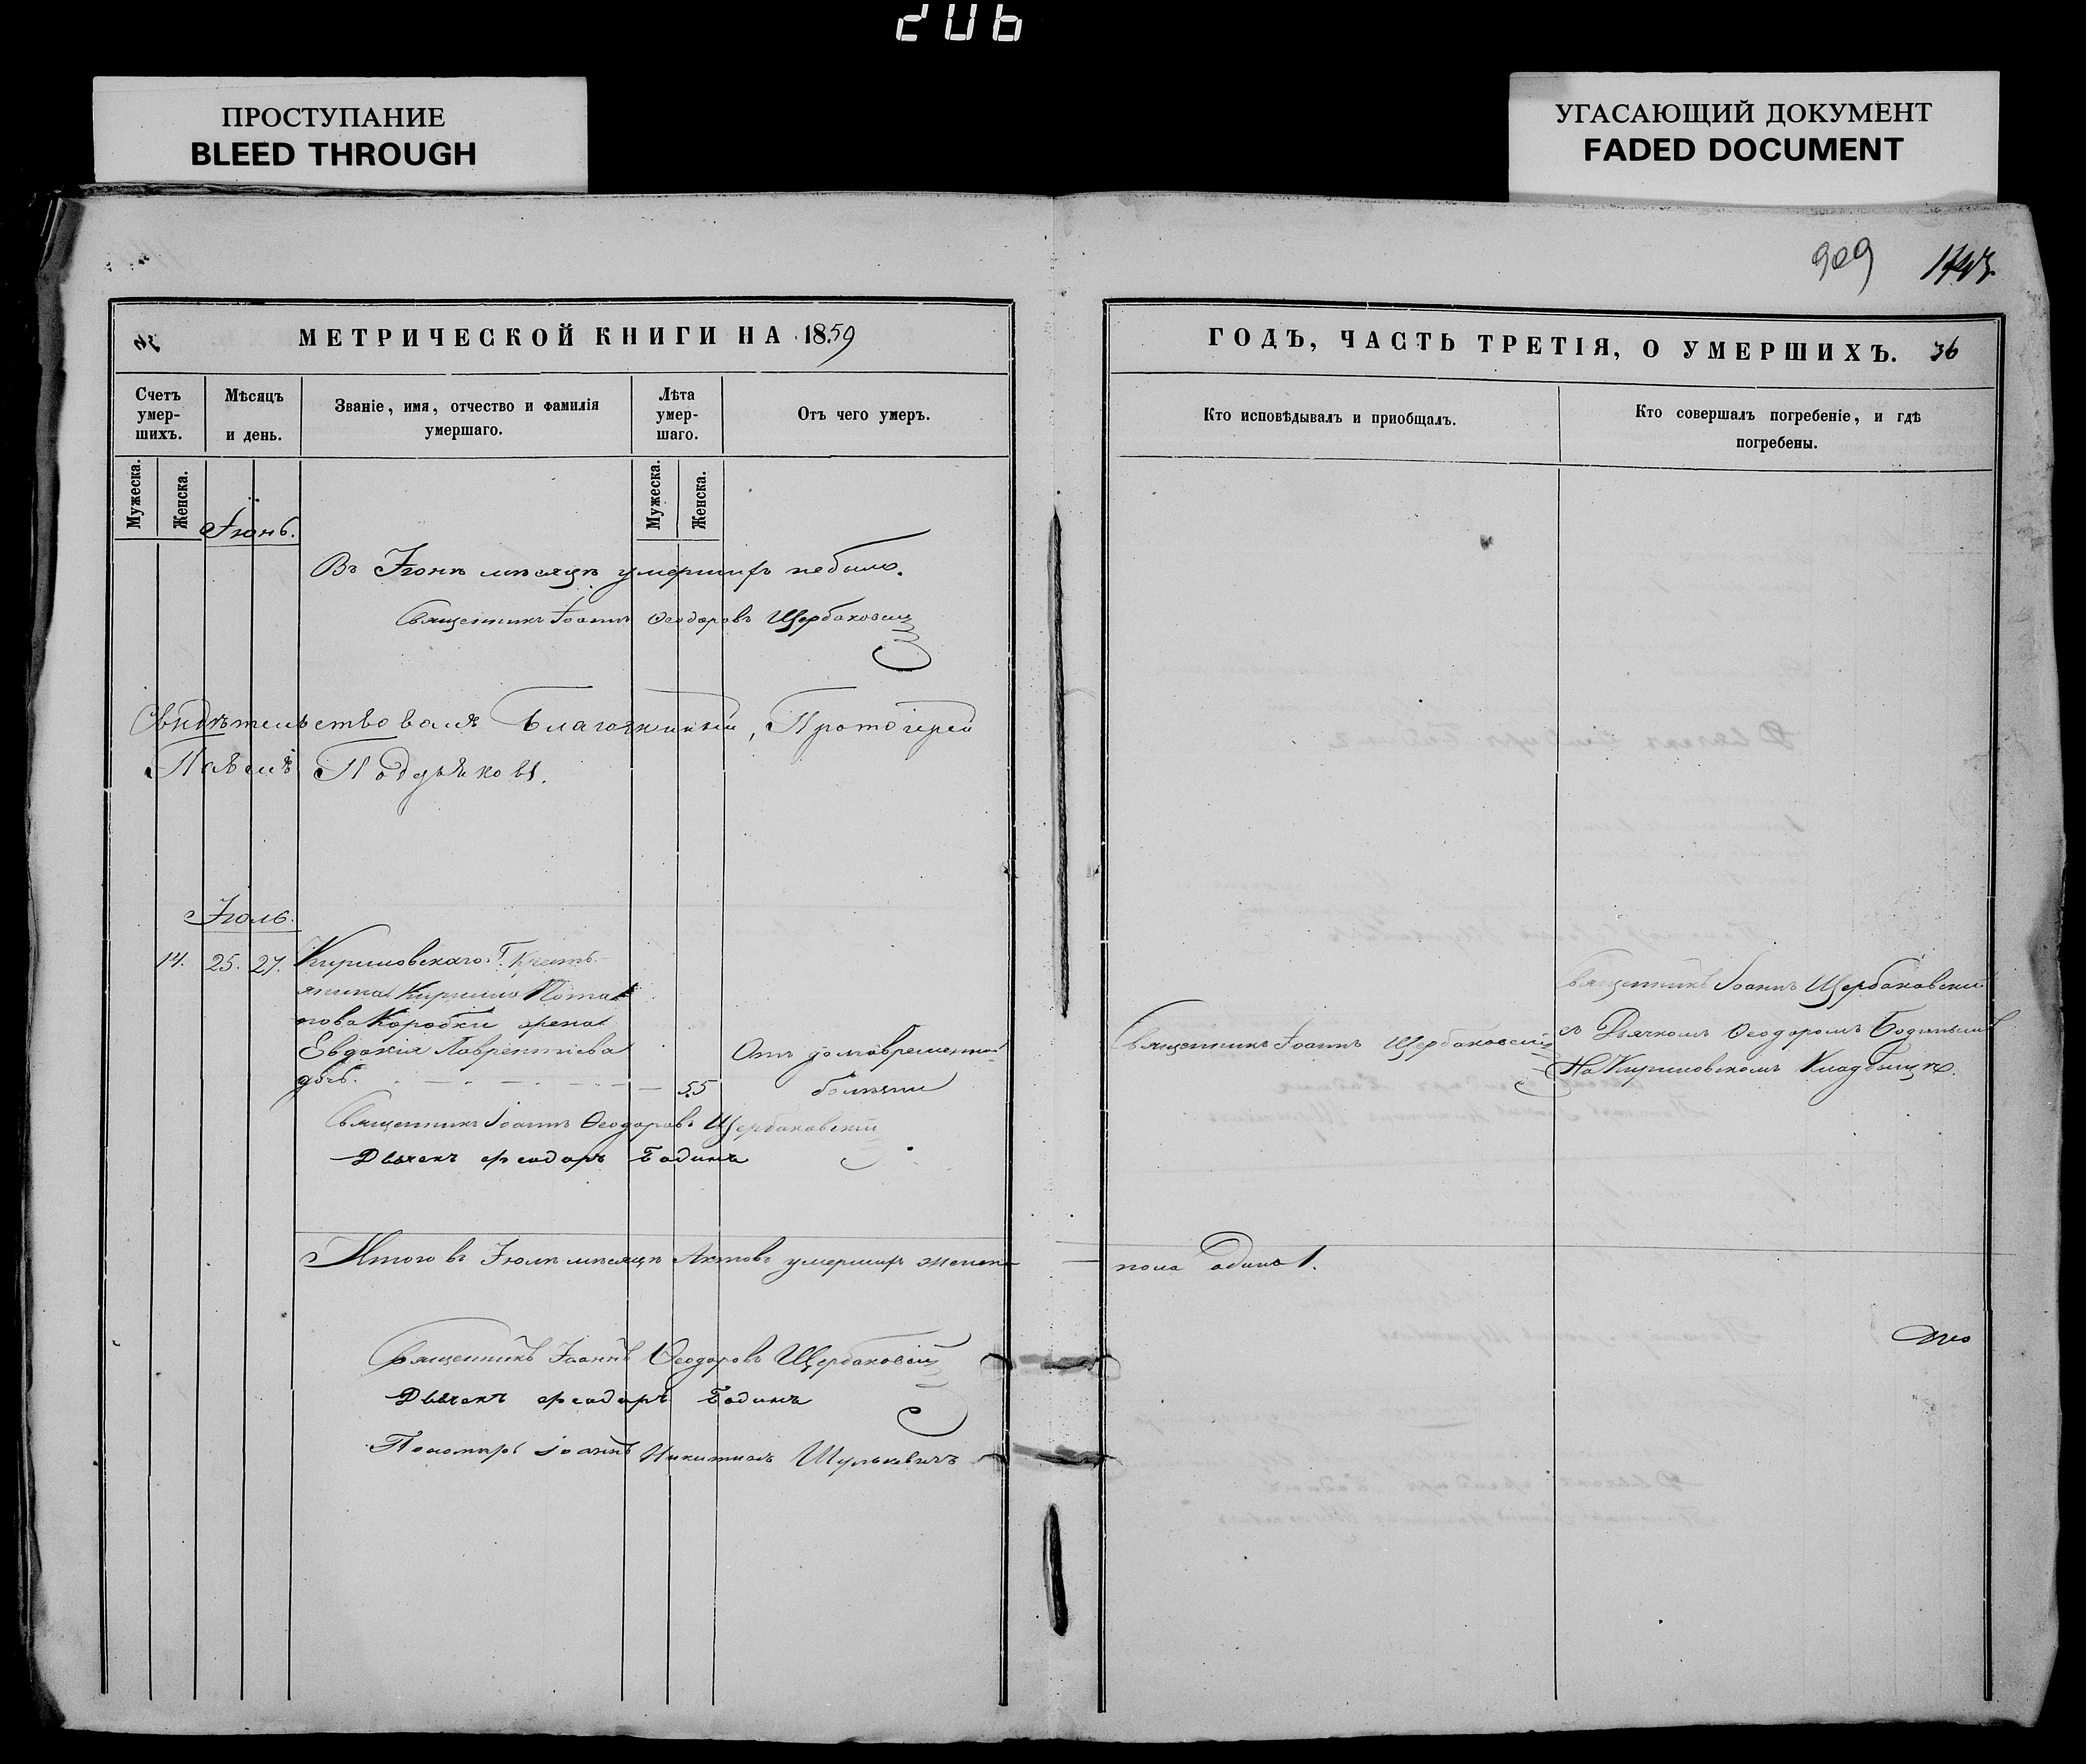 206
ПРОСТУПАНИЕ
BLEED THROUGH
УГАСАЮЩИЙ ДОКУМЕНТ
FADED DOCUMENT
909
МЕТРИЧЕСКОЙ КНИГИ НА 1859
ГОДЪ, ЧАСТЬ ТРЕТІЯ, О УМЕРШИХЪ. 36
Счетъ умер-шихъ.
Мѣсяцъ и день.
Званіе, имя, отчество и фамилія умершаго.
Лѣта умер-шаго.
Отъ чего умеръ.
Кто исповѣдывалъ и приобщалъ.
Кто совершалъ погребеніе, и гдѣ
погребены.
Мужеска.
Женска.
Мужеска.
Женска.
Іюнь.
Въ Іюнѣ мѣсяцѣ умершихъ небыло.
Священникъ Іоаннъ Ѳеодоровъ Щербаковскій
Свидѣтельствовалъ Благочинный, Протоіерей
Павелъ
Іюль.
14. 25. 27. Кириловскаго Г. кресть-
янина Кирилла Потап
пова Коробки жена
Евдокія Лаврентіева
55
Отъ долговременной
болѣзни
Священникъ Іоаннъ Щербаковскій
Священникъ Іоаннъ Щербаковскій
съ Дьячкомъ Ѳеодоромъ
На Кириловскомъ Кладбищѣ.
Священникъ Іоаннъ Ѳеодоровъ Щербаковскій
Дьячекъ Феодоръ Бодинъ
Итого въ Іюлѣ мѣсяцѣ Актовъ умершихъ женска
пола одинъ 1.
Священникъ Іоаннъ Ѳеодоровъ Щербаковскій
Дьячекъ Феодоръ Бодинъ
Пономарь Іоаннъ Никитинъ Шулькевичъ